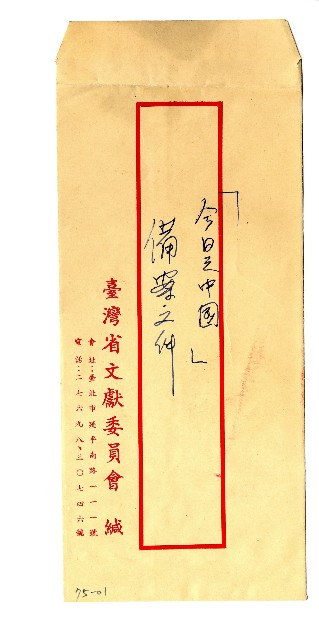 「今日之中國」
備案文件
臺灣省文獻委員會 緘
會址:臺北市延平南路一一一號
電話:二七六九八、三〇七四六號
75-01